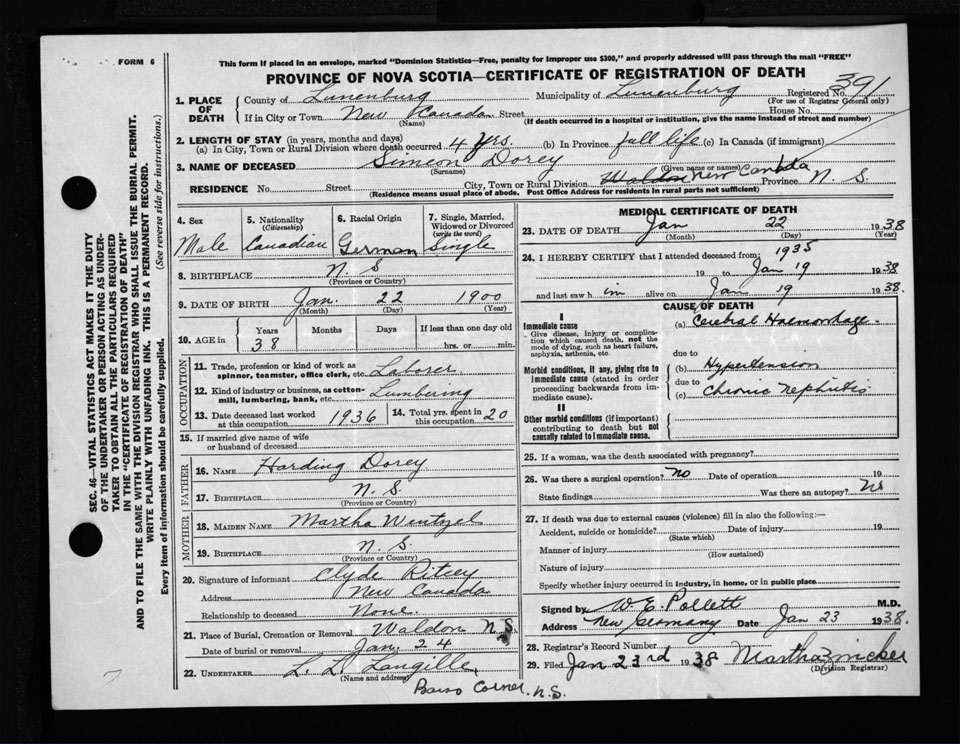 FORM 6
This form if placed in an envelope, marked "Dominion Statistics—Free, penalty for improper use $300," and properly addressed will pass through the mail "FREE"
PROVINCE OF NOVA SCOTIA—CERTIFICATE OF REGISTRATION OF DEATH
Registered No. 391
(For use of Registrar General only)
1. PLACE OF DEATH
County of Lunenburg Municipality of Lunenburg
If in City or Town New Canada Street House No.
(Name) (If death occurred in a hospital or institution, give the name instead of street and number)
2. LENGTH OF STAY (in years, months and days)
(a) In City, Town or Rural Division where death occurred 4 yrs. (b) In Province full life (c) In Canada (if immigrant)
3. NAME OF DECEASED Simeon Dorey
(Surname) (Given name or names)
RESIDENCE No. Street City, Town or Rural Division Waldon New Canada Province N. S.
(Residence means usual place of abode. Post Office Address for residents in rural parts not sufficient)
4. Sex Male
5. Nationality (Citizenship) Canadian
6. Racial Origin German
7. Single, Married, Widowed or Divorced (write the word) Single
8. BIRTHPLACE N. S
(Province or Country)
9. DATE OF BIRTH Jan. 22 1900
(Month) (Day) (Year)
10. AGE in Years Months Days If less than one day old
38 hrs. or min.
OCCUPATION
11. Trade, profession or kind of work as spinner, teamster, office clerk, etc. Laborer
12. Kind of industry or business, as cotton-mill, lumbering, bank, etc. Lumbering
13. Date deceased last worked at this occupation 1936
14. Total yrs. spent in this occupation 20
15. If married give name of wife or husband of deceased
FATHER
16. NAME Harding Dorey
17. BIRTHPLACE N. S.
(Province or Country)
MOTHER
18. MAIDEN NAME Martha Wentzel
19. BIRTHPLACE N. S
(Province or Country)
20. Signature of informant Clyde Ritcey
Address New Canada
Relationship to deceased None.
21. Place of Burial, Cremation or Removal Waldon N.S.
Date of burial or removal Jan. 24
22. UNDERTAKER L. L. Langille,
(Name and address)
Barss Corner, N.S.
MEDICAL CERTIFICATE OF DEATH
23. DATE OF DEATH Jan 22 1938
(Month) (Day) (Year)
24. I HEREBY CERTIFY that I attended deceased from: 1935
19 to Jan 19 1938
and last saw h im alive on Jan 19 1938.
CAUSE OF DEATH
I
Immediate cause
Give disease, injury or complication which caused death, not the mode of dying, such as heart failure, asphyxia, asthenia, etc.
(a) Cerebral Haemorrhage
due to
Morbid conditions, if any, giving rise to immediate cause (stated in order proceeding backwards from immediate cause).
(b) Hypertension
due to
(c) Chronic Nephritis
II
Other morbid conditions (if important) contributing to death but not causally related to immediate cause.
25. If a woman, was the death associated with pregnancy?
26. Was there a surgical operation? no Date of operation 19
State findings Was there an autopsy? No
27. If death was due to external causes (violence) fill in also the following:—
Accident, suicide or homicide? Date of injury 19
(State which)
Manner of injury
(How sustained)
Nature of injury
Specify whether injury occurred in industry, in home, or in public place
Signed by W. E. Pollett M.D.
Address New Germany Date Jan 23 1938.
28. Registrar's Record Number
29. Filed Jan 23rd 1938 Martha Zwicker
(Division Registrar)
SEC. 46—VITAL STATISTICS ACT MAKES IT THE DUTY
OF THE UNDERTAKER OR PERSON ACTING AS UNDER-
TAKER TO OBTAIN ALL THE PARTICULARS REQUIRED
IN THE "CERTIFICATE OF REGISTRATION OF DEATH"
AND TO FILE THE SAME WITH THE DIVISION REGISTRAR WHO SHALL ISSUE THE BURIAL PERMIT.
WRITE PLAINLY WITH UNFADING INK. THIS IS A PERMANENT RECORD.
Every item of information should be carefully supplied. (See reverse side for instructions.)